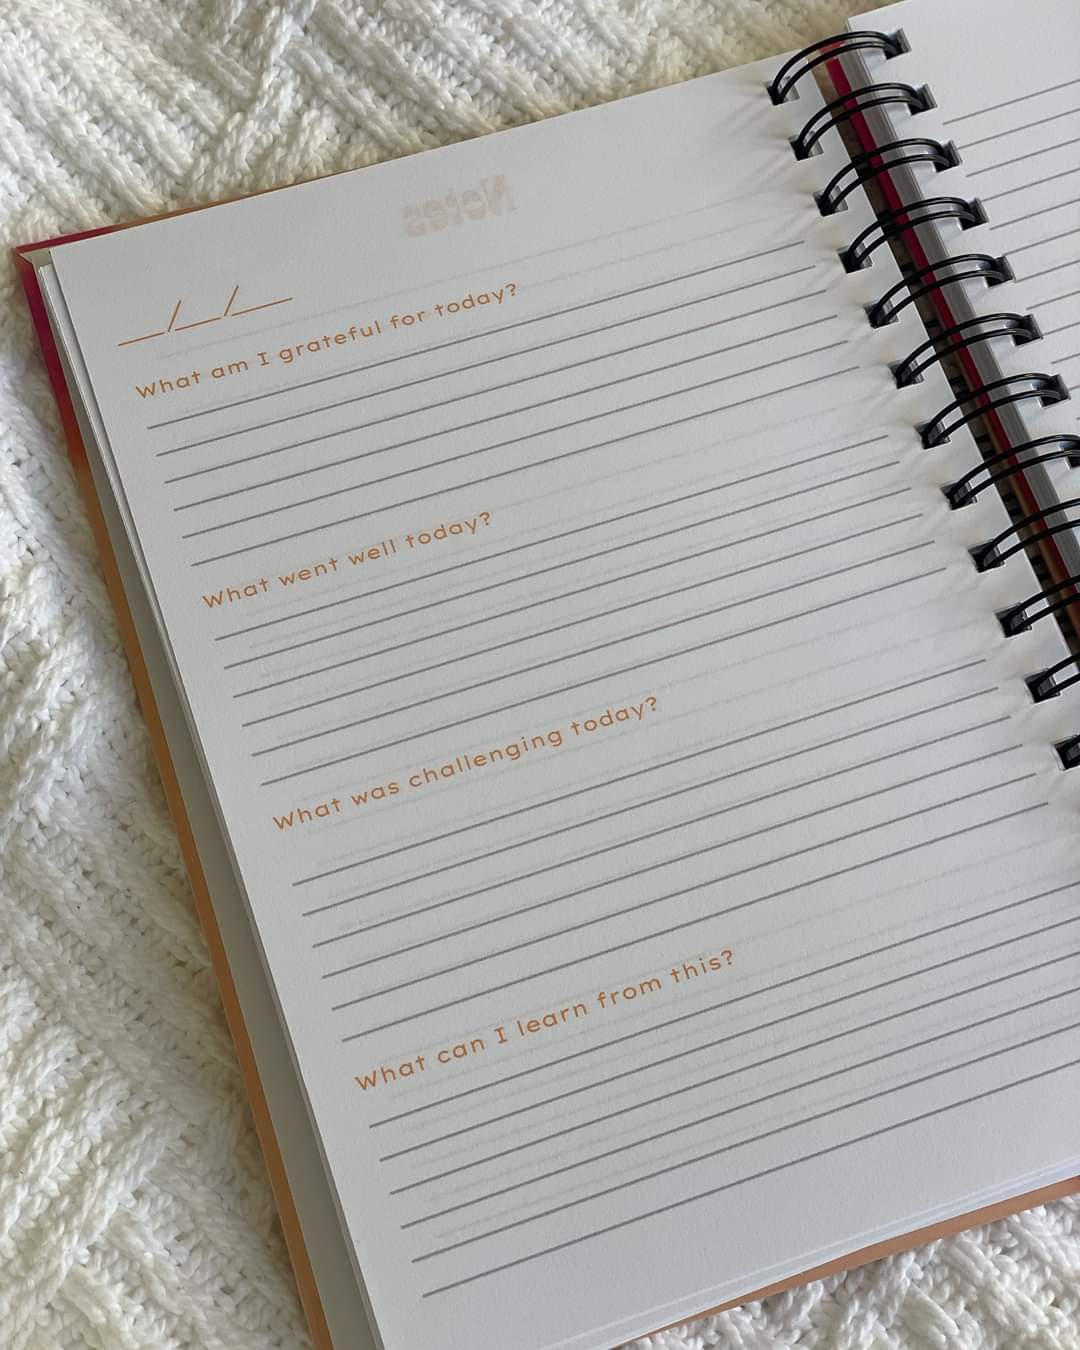 Notes
__/__/__
What am I grateful for today?
What went well today?
What was challenging today?
What can I learn from this?